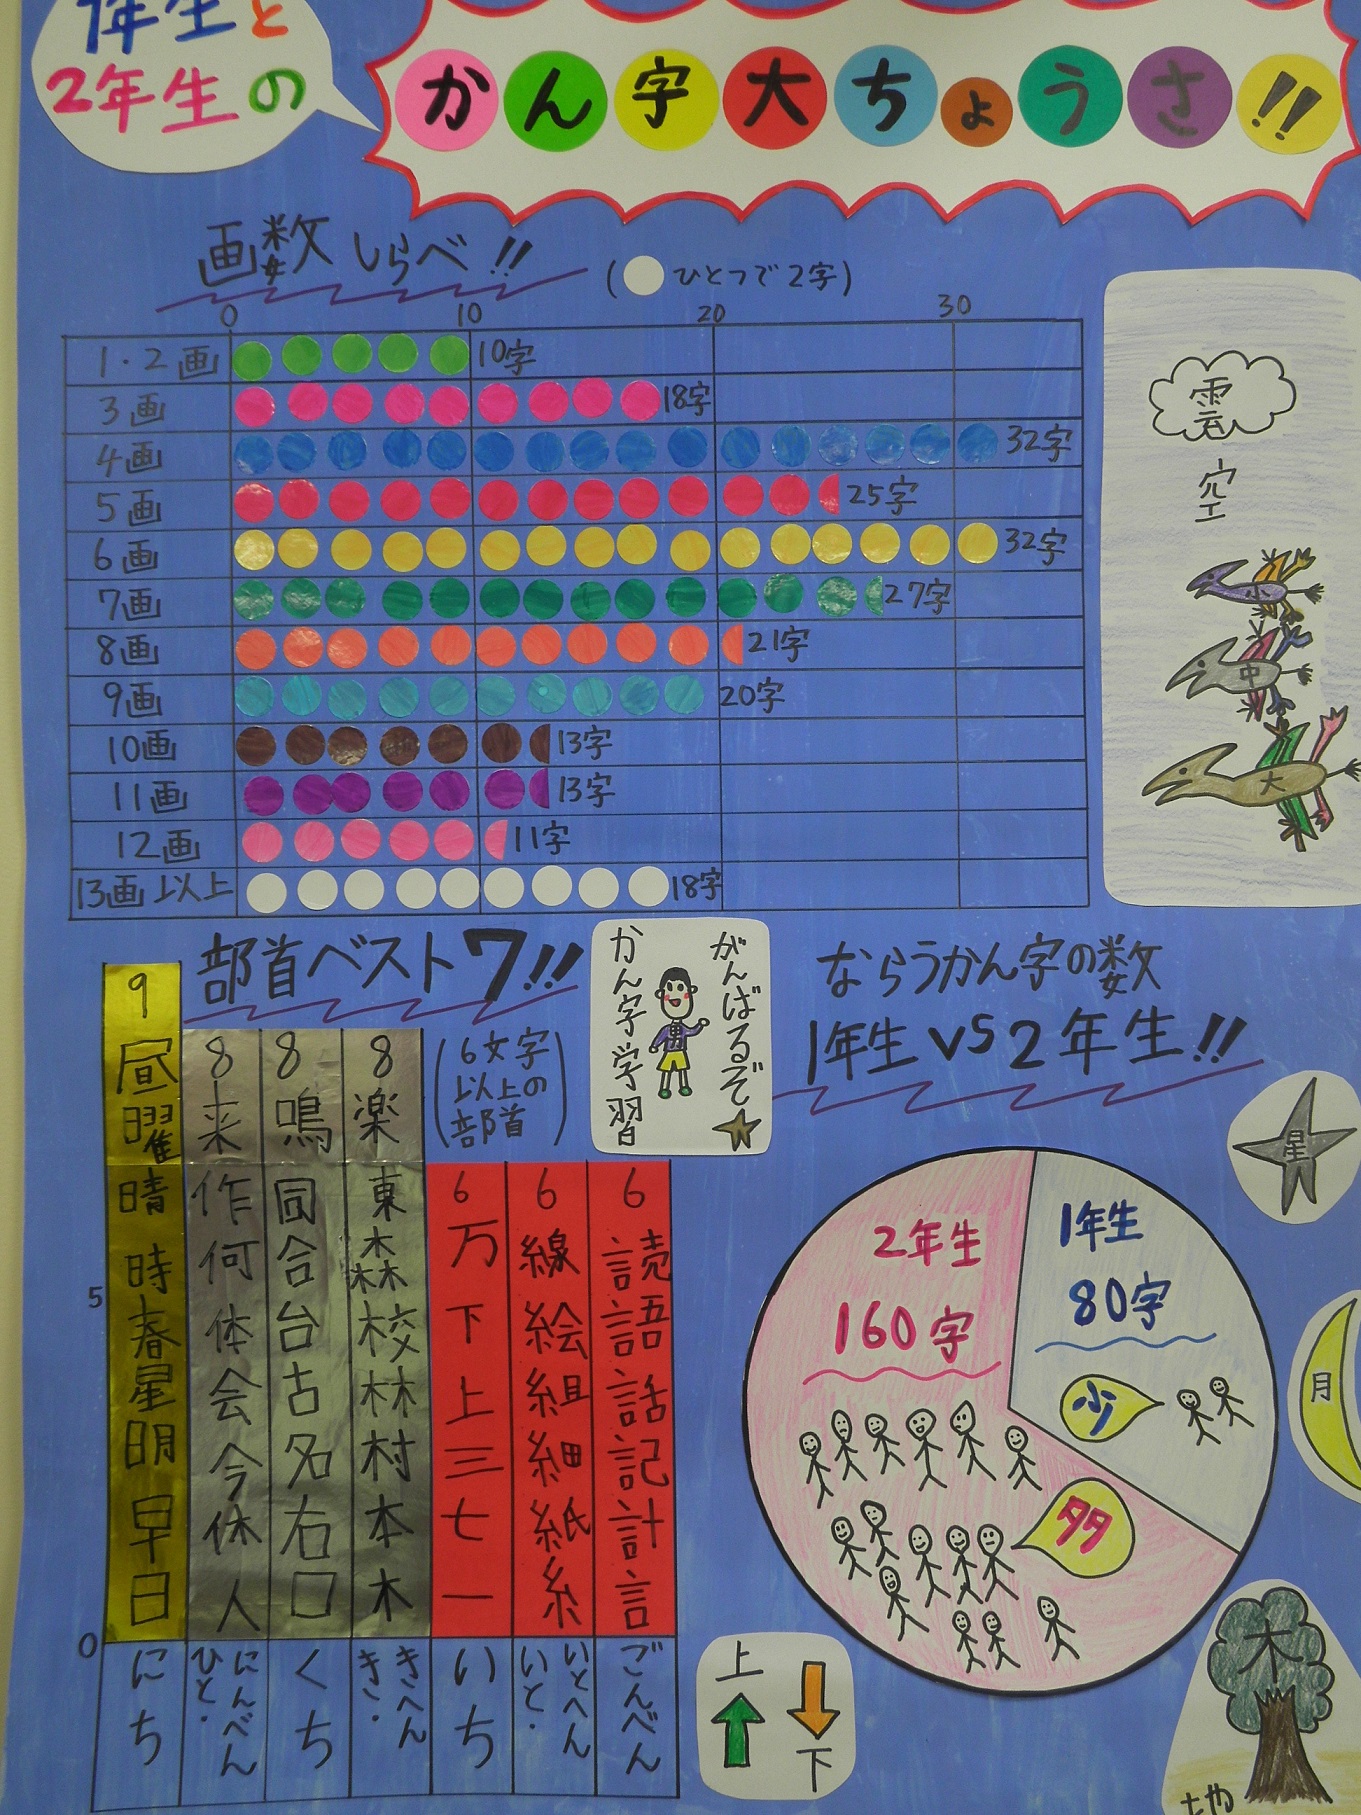 1年生と
2年生の
かん字大ちょうさ!!
画数しらべ!!
(○ひとつで2字)
0 10 20 30
1・2画 10字
3画 18字
4画 32字
5画 25字
6画 32字
7画 27字
8画 21字
9画 20字
10画 13字
11画 13字
12画 11字
13画以上 18字
雲
空
小
中
大
部首ベスト7!!
(6文字
以上の
部首)
がんばるぞ
かん字学習
ならうかん字の数
1年生 VS 2年生!!
5
0
9 昼曜晴時春星明早日 にち
8 来作何体会今休人 ひと・にんべん
8 鳴同合台古名右口 くち
8 楽東森校林村本木 き・きへん
6 万下上三七一 いち
6 線絵組細紙糸 いと・いとへん
6 読語話記計言 ごんべん
2年生
160字
1年生
80字
少
多
星
月
上
下
木
地